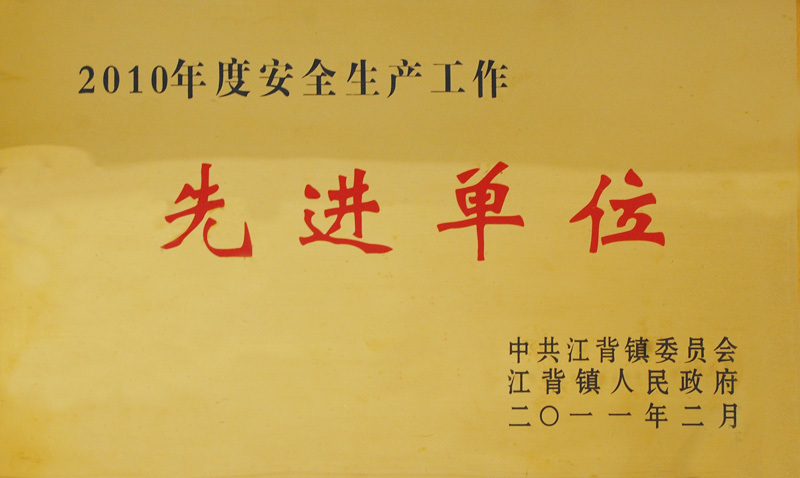 2010年度安全生产工作
先进单位
中共江背镇委员会
江背镇人民政府
二〇一一年二月